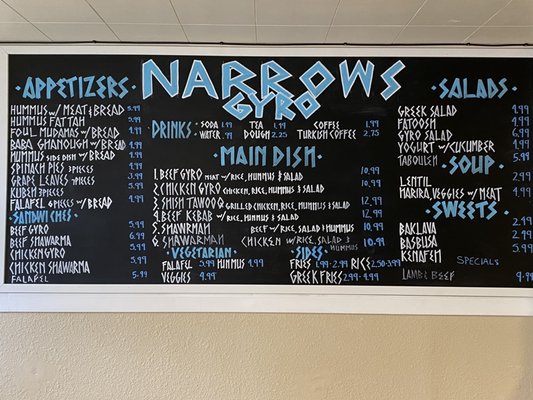 NARROWS
GYRO
APPETIZERS
HUMMUS W/ MEAT & BREAD 5.99
HUMMUS FATTAH 5.99
FOUL MUDAMAS W/BREAD 4.99
BABA GHANOUGH W/BREAD 4.99
HUMMUS SIDE DISH W/BREAD 4.99
SPINACH PIES 3 PIECES 3.99
GRAPE LEAVES 7 PIECES 5.99
KUBEH 3 PIECES 5.99
FALAFEL 6 PIECES W/BREAD 4.99
SANDWICHES
BEEF GYRO 5.99
BEEF SHAWARMA 6.99
CHICKEN GYRO 5.99
CHICKEN SHAWARMA 5.99
FALAFEL 5.99
DRINKS
SODA .99 TEA 1.99 COFFEE 1.99
WATER .99 DOUGH 2.25 TURKISH COFFEE 2.25
MAIN DISH
1. BEEF GYRO MEAT W/RICE, HUMMUS & SALAD 10.99
2. CHICKEN GYRO CHICKEN, RICE, HUMMUS & SALAD 10.99
3. SHISH TAWOOQ GRILLED CHICKEN, RICE, HUMMUS & SALAD 12.99
4. BEEF KEBAB W/RICE, HUMMUS & SALAD 12.99
5. SHAWRMAH BEEF W/RICE, SALAD & HUMMUS 10.99
6. SHAWARMAH CHICKEN W/RICE, SALAD & HUMMUS 10.99
VEGETARIAN
FALAFL 5.99 HUMMUS 4.99
VEGGIES 4.99
SIDES
FRIES 1.99-2.99 RICE 2.50-3.99
GREEK FRIES 2.99-4.99
SALADS
GREEK SALAD 4.99
FATOOSH 4.99
GYRO SALAD 6.99
YOGURT W/CUCUMBER 4.99
TABOULEH 5.99
SOUP
LENTIL 2.99
HARIRA, VEGGIES W/ MEAT 4.99
SWEETS
BAKLAVA 2.99
BASBUSA 2.99
KENAFEH 5.99
SPECIALS
LAMB BEEF